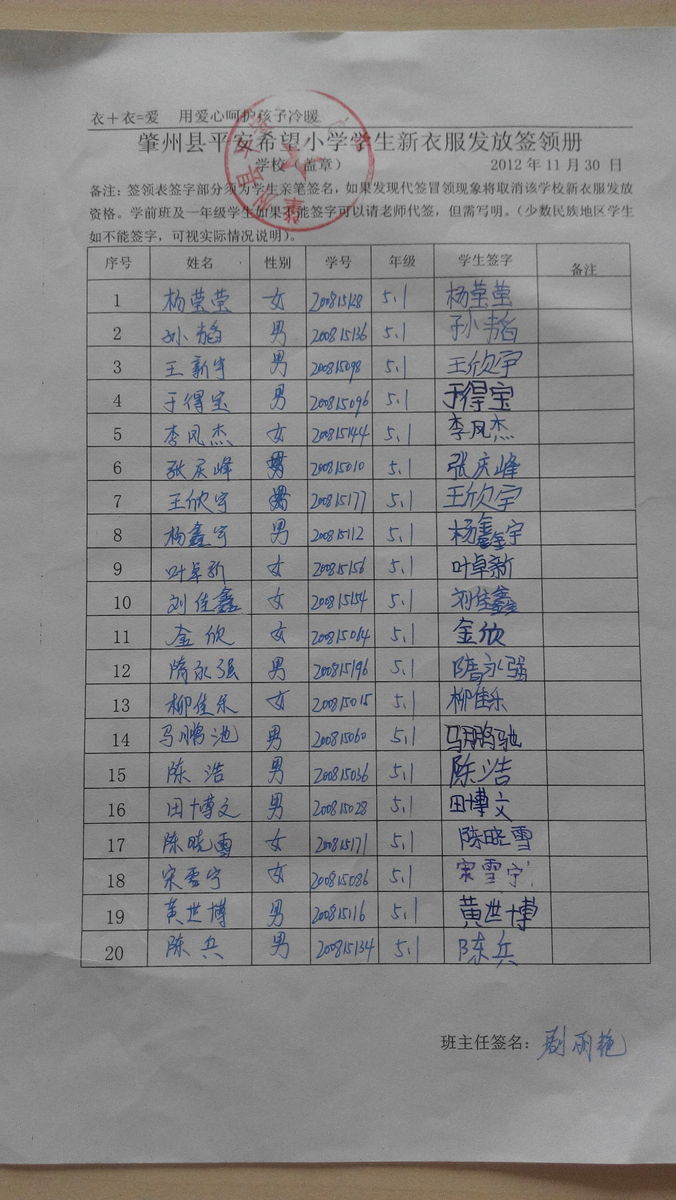 衣＋衣=爱 用爱心呵护孩子冷暖
肇州县平安希望小学学生新衣服发放签领册
学校（盖章） 2012 年 11 月 30 日
备注：签领表签字部分须为学生亲笔签名，如果发现代签冒领现象将取消该学校新衣服发放
资格。学前班及一年级学生如果不能签字可以请老师代签，但需写明。（少数民族地区学生
如不能签字，可视实际情况说明）。
序号 姓名 性别 学号 年级 学生签字 备注
1 杨莹莹 女 200815128 5.1 杨莹莹
2 孙韬 男 200815136 5.1 孙韬
3 王新宇 男 200815098 5.1 王欣宇
4 于得宝 男 200815096 5.1 于得宝
5 李凤杰 女 200815144 5.1 李凤杰
6 张庆峰 男 200815010 5.1 张庆峰
7 王欣宇 男 200815177 5.1 王欣宇
8 杨鑫宇 男 200815112 5.1 杨鑫宇
9 叶卓新 女 200815156 5.1 叶卓新
10 刘佳鑫 女 200815154 5.1 刘佳鑫
11 金欣 女 200815014 5.1 金欣
12 隋永强 男 200815196 5.1 隋永强
13 柳佳乐 女 200815015 5.1 柳佳乐
14 马鹏池 男 200815060 5.1 马鹏驰
15 陈浩 男 200815036 5.1 陈浩
16 田博文 男 200815028 5.1 田博文
17 陈晓雪 女 200815171 5.1 陈晓雪
18 宋雪宁 女 200815086 5.1 宋雪宁
19 黄世博 男 200815116 5.1 黄世博
20 陈兵 男 200815134 5.1 陈兵
班主任签名： 丽艳